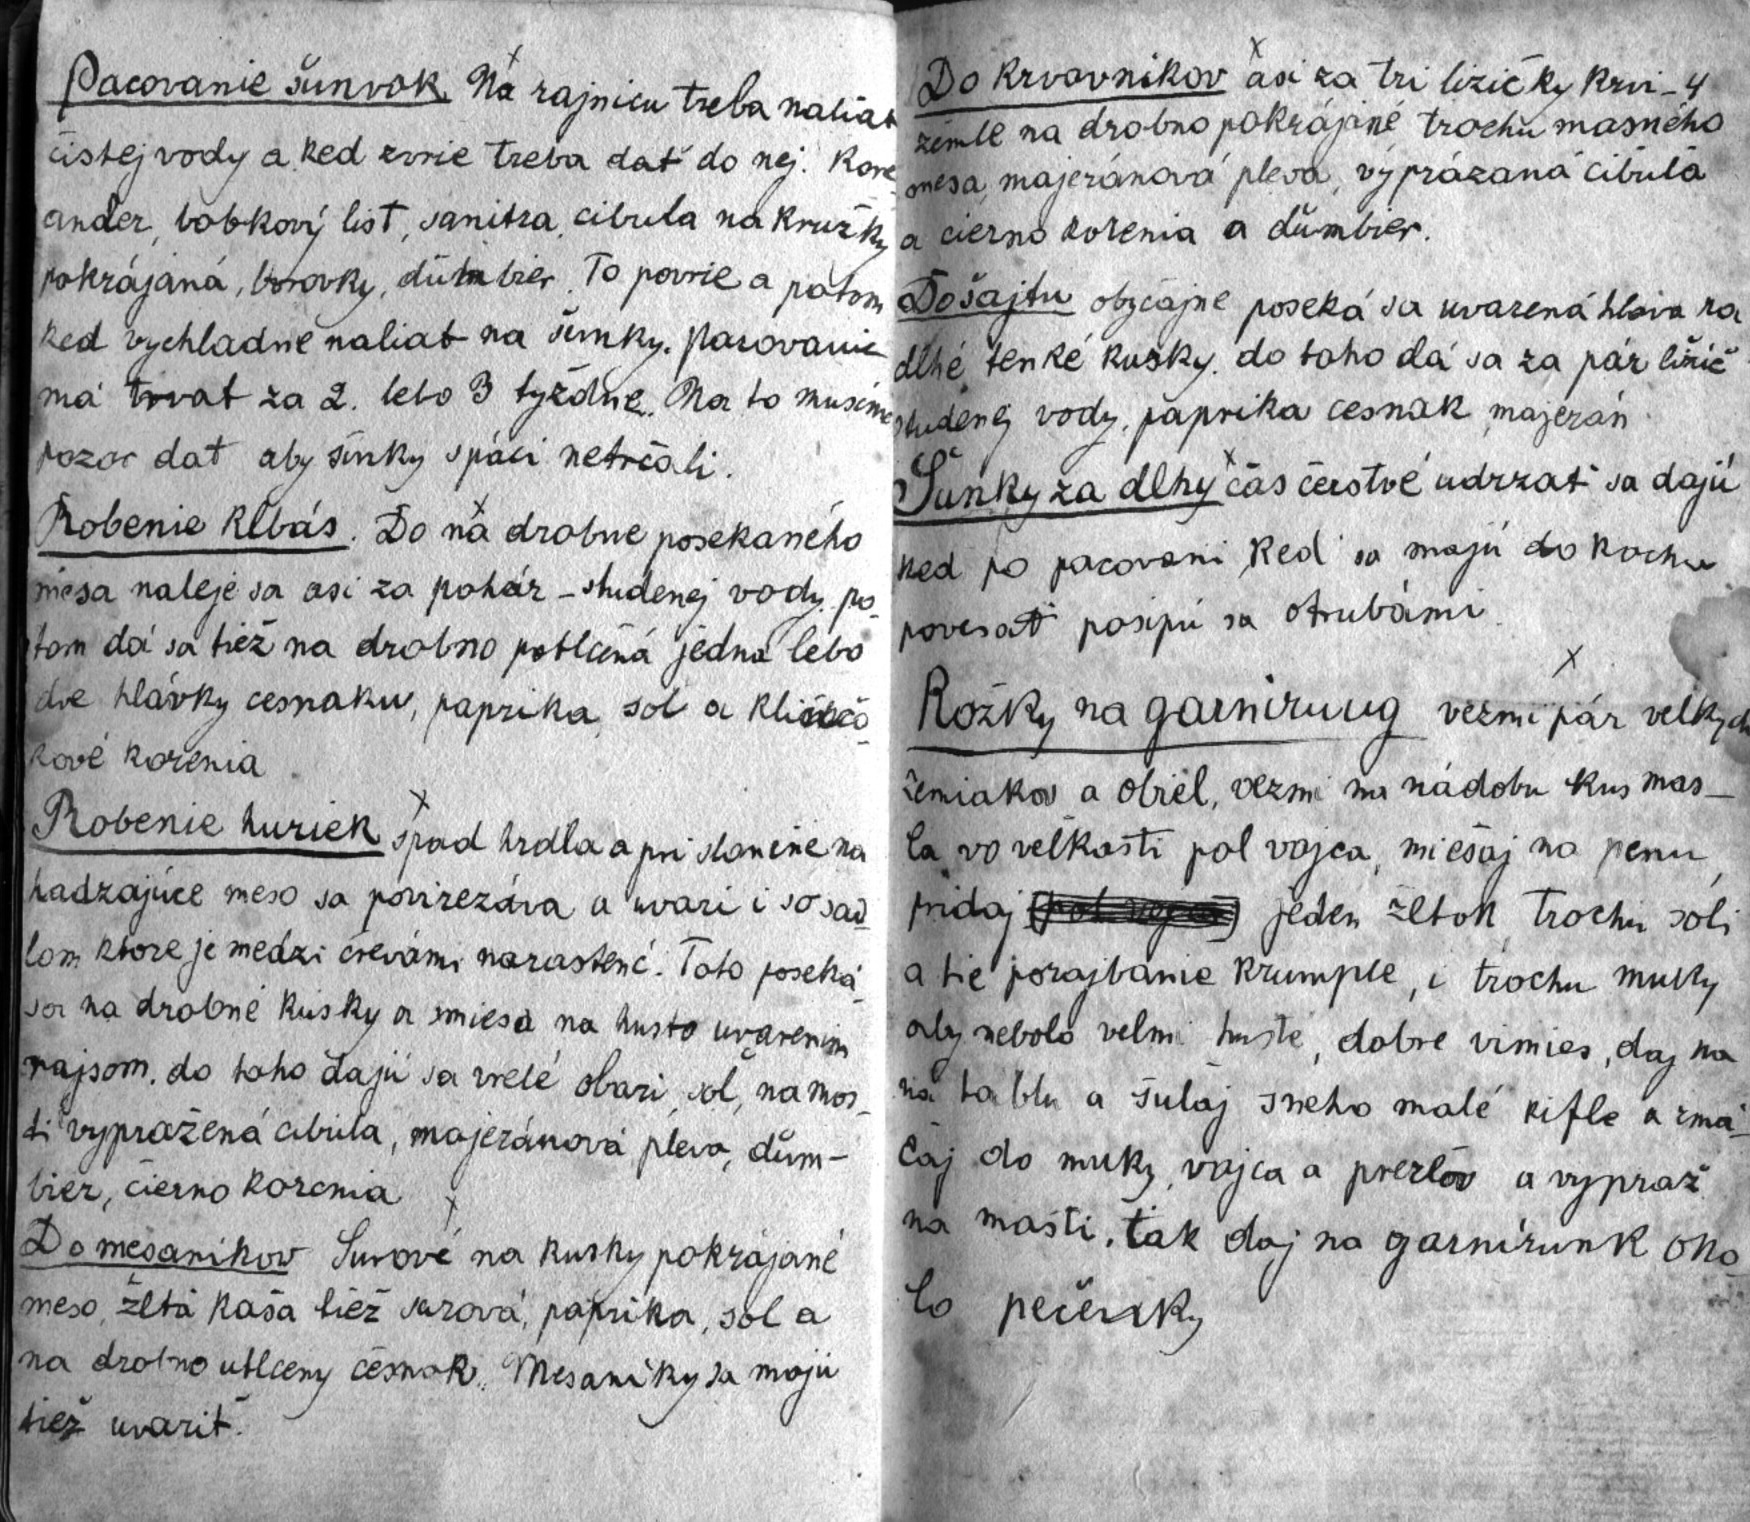 Pacovanie šunvok Na rajnicu treba naliať
čistej vody a ked zvrie treba dať do nej. Kore-
ander, bobkový list, sanitra, cibula na kružky
pokrájaná, borovky, dūmbier. To povrie a potom
ked vychladne naliat na šunky. pacovanie
má trvat za 2. lebo 3 tyždne. Na to musíme
pozor dať aby šinky spáci netrčali.
Robenie klbás. Do na drobne posekaného
mesa naleje sa asi za pohár – studenej vody. po-
tom dá sa tiež na drobno potlčená jedna lebo
dve hlávky cesnaku, paprika, sol a klinčo-
kové korenia
Robenie huriek spod hrdla a pri slanine na
hadzajúce meso sa povirezáva a uvari i so sad-
lom ktore je medzi črevámi narastenć. Toto poseká
sa na drobné kúsky a smieša na husto uvarenim
rajsom. do toho dajú sa vrelé obari, sol, na mos-
ti vypražená cibula, majeránová pleva, dūm-
bier, čierno korenia
Do mesanikov Surové na kusky pokrájané
meso, žltá kaša tiež surová, paprika, sol a
na drobno utlceny česnak. Mesaniky sa majú
tiež uvarit.
Do krvavnikov asi za tri lizičky krvi – 4
žemle na drobno pokrájané trochu masného
mesa, majeránová pleva, výprázaná cibula
a cierno korenia a dūmbier.
Do šajtu obyčajne poseká sa uvarená hlava na
dlhé tenké kusky. do toho dá sa za pár ližič
studenej vody, paprika cesnak, majerán
Šunky za dlhý čas čerstvé udrzať sa dajú
ked po pacovani, ked sa majú do kochu
povesať posipú sa otrubámi.
Rožky na garnirung vezmi pár velkych
žemiakov a obiel, vezmi na nádobu kus mas-
la vo veľkosti pol vajca, miešaj na penu,
pridaj jeden žltok, trochu soli
a tie porajbanie krumple, i trochu muky
aby nebolo velmi husté, dobre vimies, daj na
na tablu a šúlaj sneho malé kifle a zmá-
čaj do muky, vajca a prezlov a vypraž
na mašti. tak daj na garnirunk oko-
lo pečenky